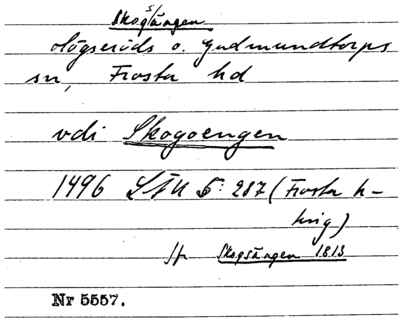 Skogsängen
Högseröds o. Gudmundtorps
sn, Frosta hd
vdi Skogoengen
1496 LÅU 5: 287 (Frosta h-
krig)
Jfr Skogsängen 1813
Nr 5557.